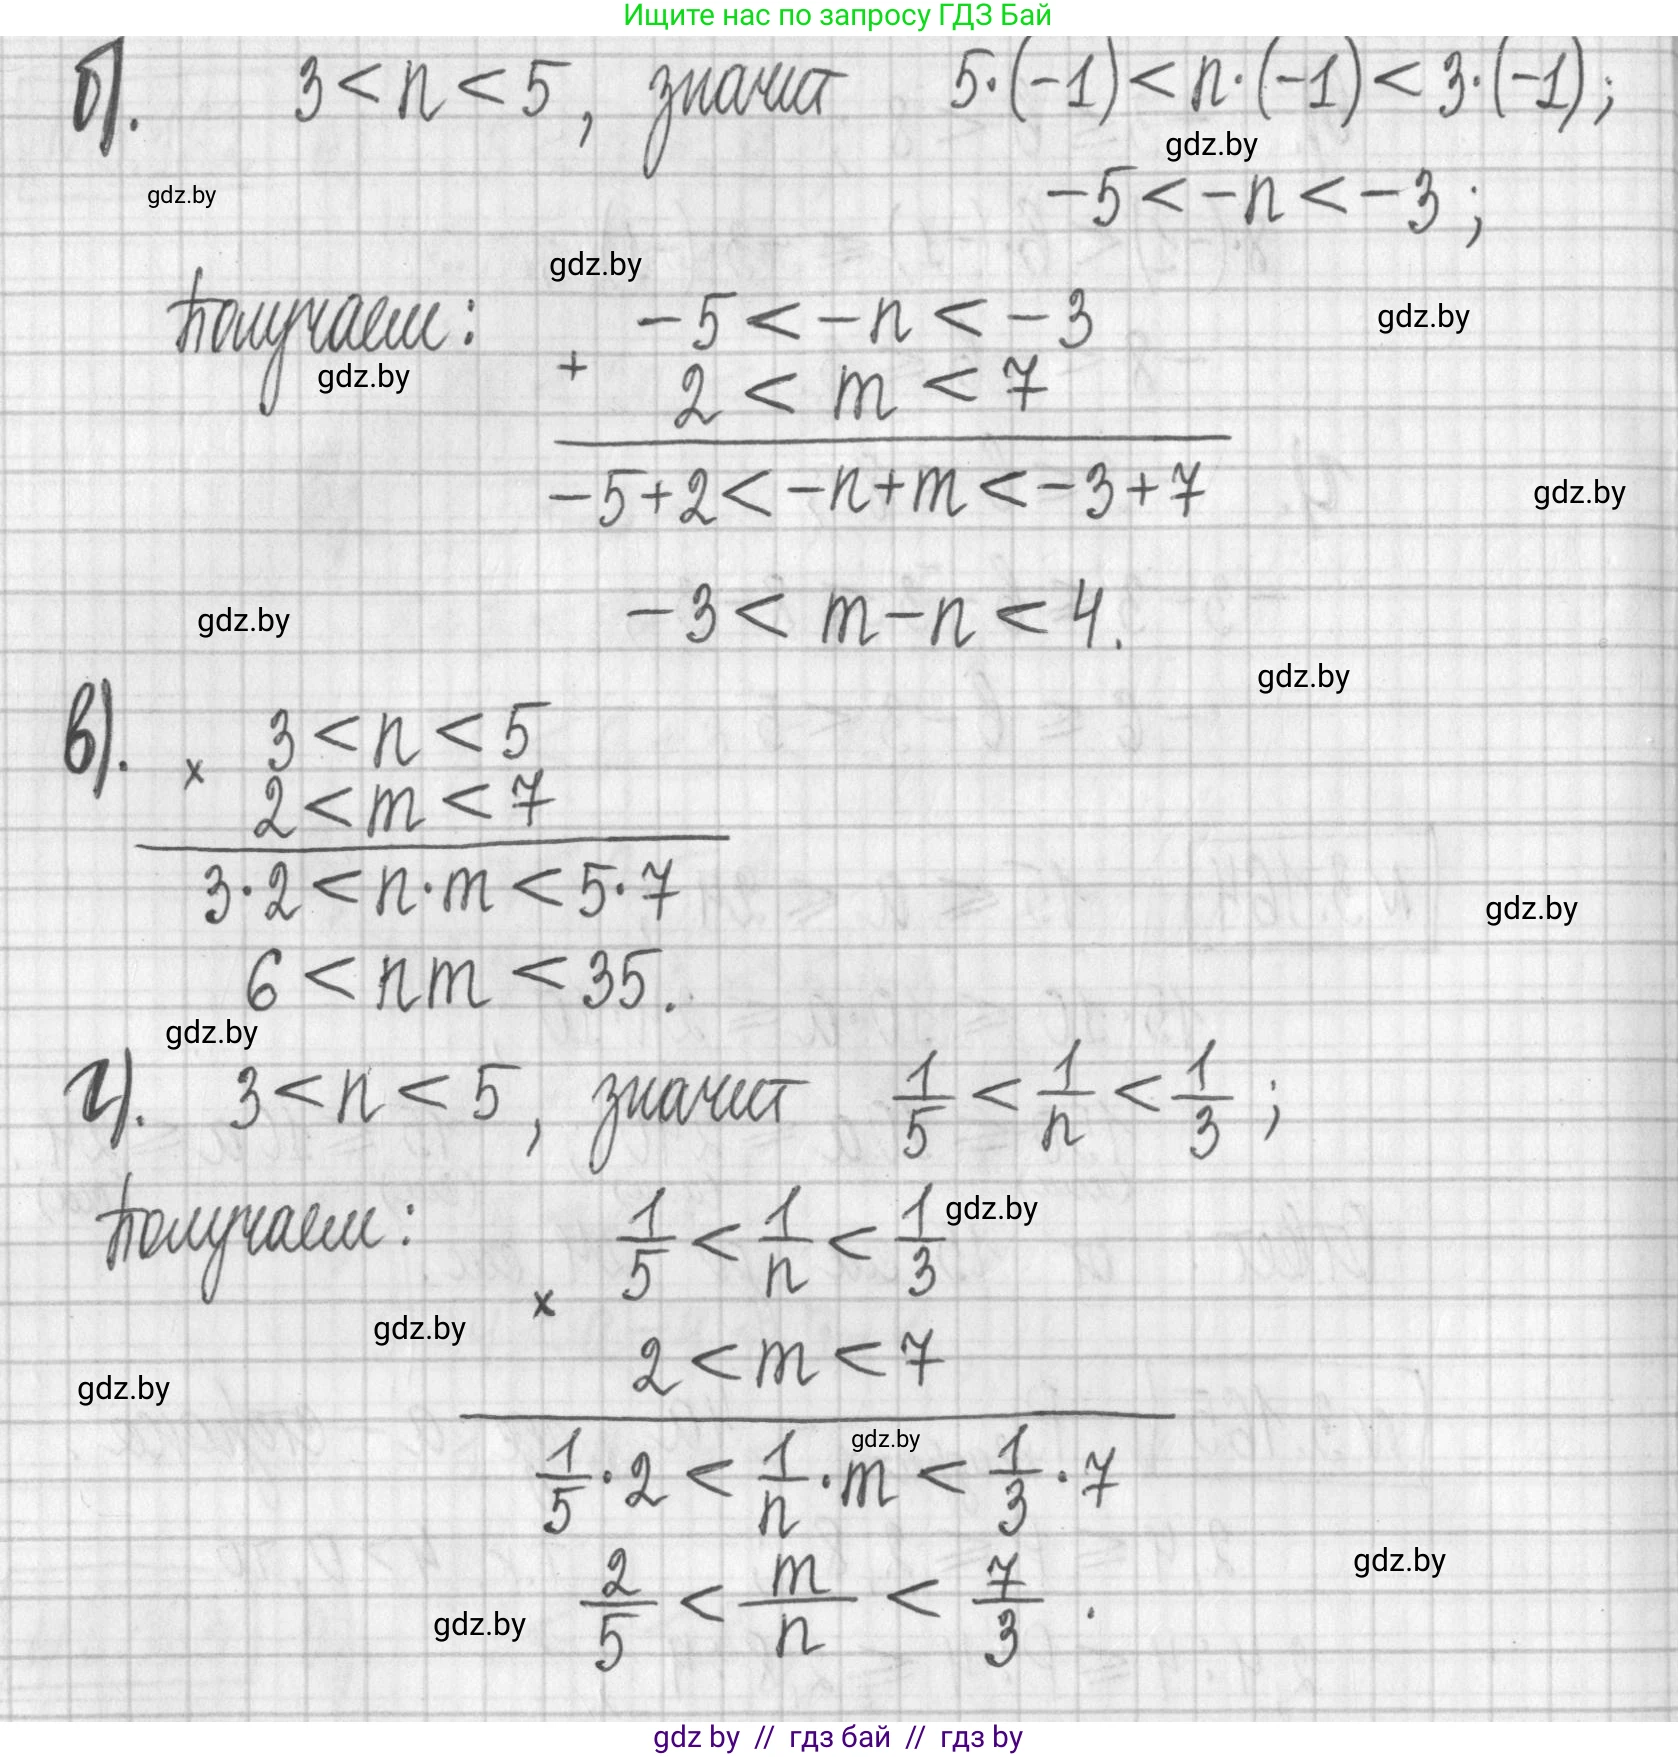 Ищите нас по запросу ГДЗ Бай
б). 3 < n < 5, значит 5·(-1) < n·(-1) < 3·(-1);
gdz.by
gdz.by
-5 < -n < -3;
gdz.by
Получаем: -5 < -n < -3
gdz.by
gdz.by
+ 2 < m < 7
-5+2 < -n+m < -3+7
gdz.by
-3 < m-n < 4.
gdz.by
gdz.by
в). 3 < n < 5
× 2 < m < 7
3·2 < n·m < 5·7
gdz.by
6 < nm < 35.
gdz.by
г). 3 < n < 5, значит 1/5 < 1/n < 1/3;
Получаем: 1/5 < 1/n < 1/3
gdz.by
×
gdz.by
2 < m < 7
gdz.by
gdz.by
1/5·2 < 1/n·m < 1/3·7
gdz.by
2/5 < m/n < 7/3.
gdz.by
gdz by // гдз бай // гдз by